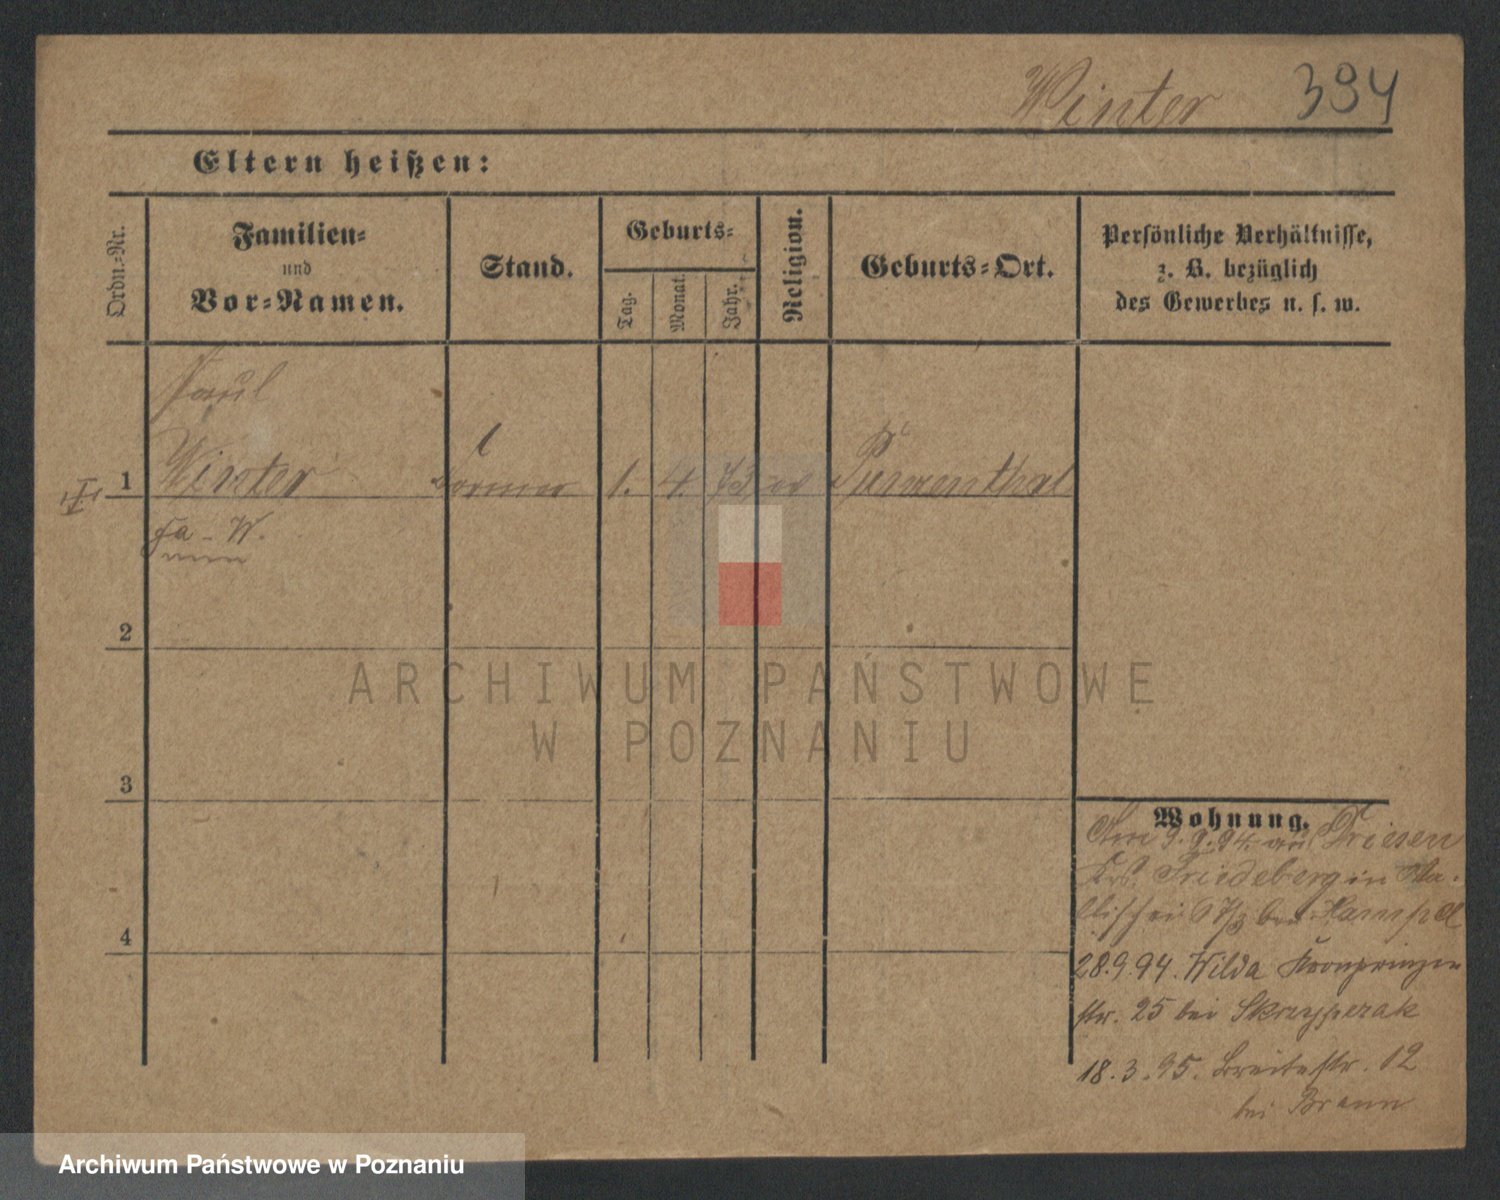 Winter 394
Eltern heißen:
Ordn.=Nr.
Familien=
und
Vor=Namen.
Stand.
Geburts=
Tag.
Monat.
Jahr.
Religion.
Geburts=Ort.
Persönliche Verhältnisse,
z. B. bezüglich
des Gewerbes u. s. w.
Paul
1 Winter Former 1. 4. 73 ev
Fa - W.
2
3
4
Wohnung.
9.9.94. Driesen
Krs. Friedeberg in
bei Hampel
28.9.94. Wilda Kronprinzen
str. 25 bei
18.3.95. Breitestr. 12
bei Braun
ARCHIWUM PAŃSTWOWE
W POZNANIU
Archiwum Państwowe w Poznaniu